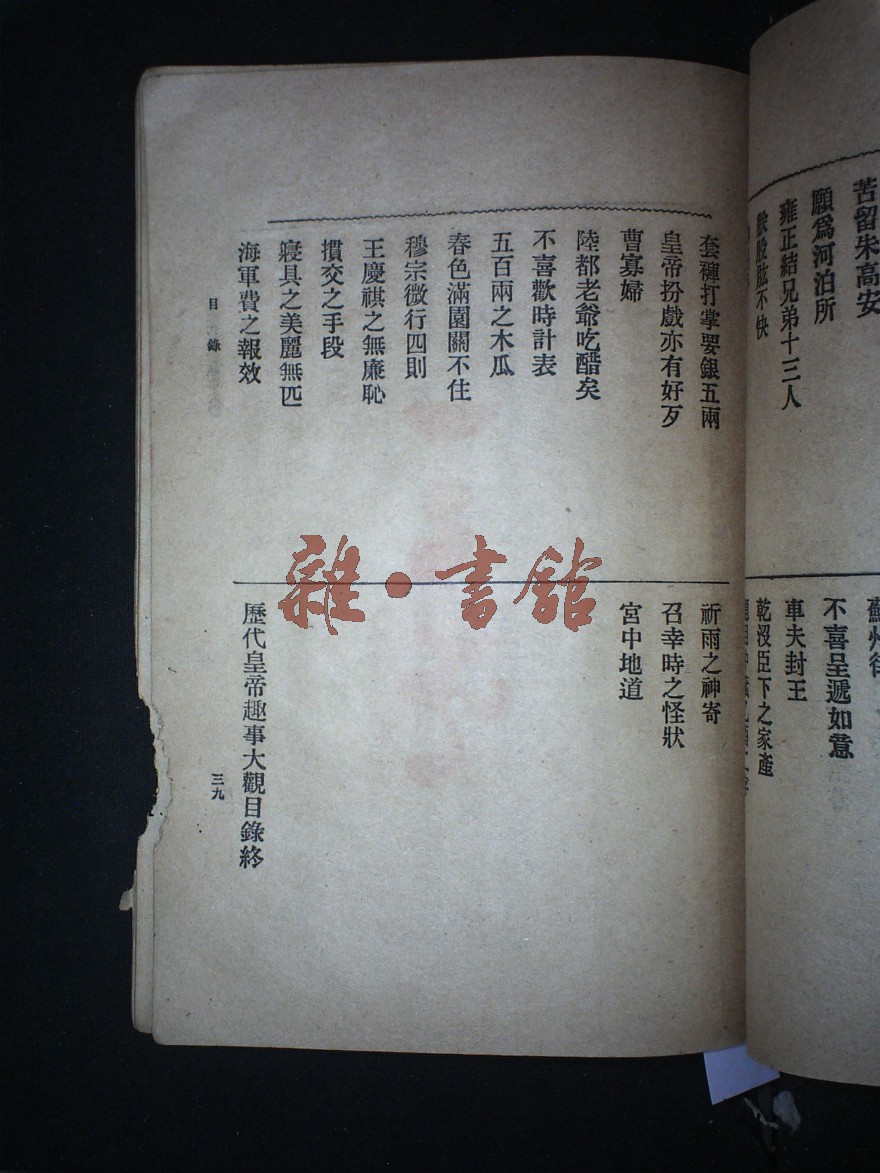 苦留朱高安
願爲河泊所
雍正結兄弟十三人
股股肱不快
不喜呈遞如意
車夫封王
乾沒臣下之家產
套褲打掌要銀五兩
皇帝扮戲亦有好歹
曹寡婦
陸都老爺吃醋矣
不喜歡時計表
五百兩之木瓜
春色滿園關不住
穆宗微行四則
王慶祺之無廉恥
摜交之手段
寢具之美麗無匹
海軍費之報效
祈雨之神奇
召幸時之怪狀
宮中地道
歷代皇帝趣事大觀目錄終
目錄
三九
雜·書館